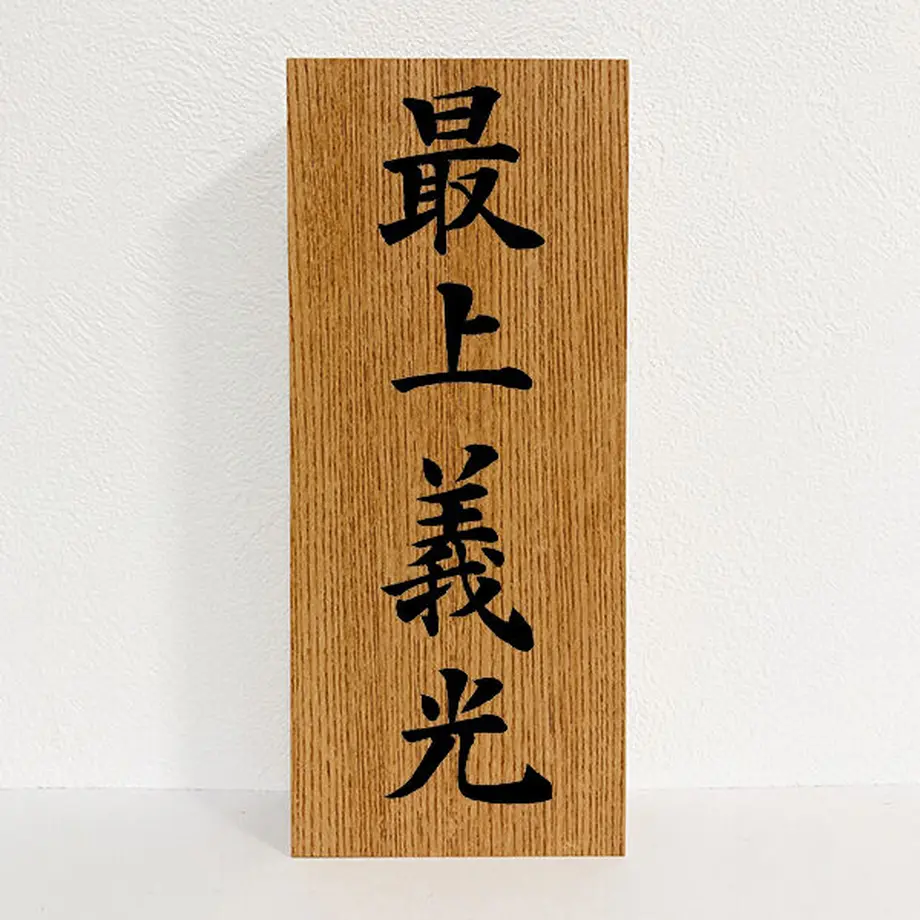 最上義光